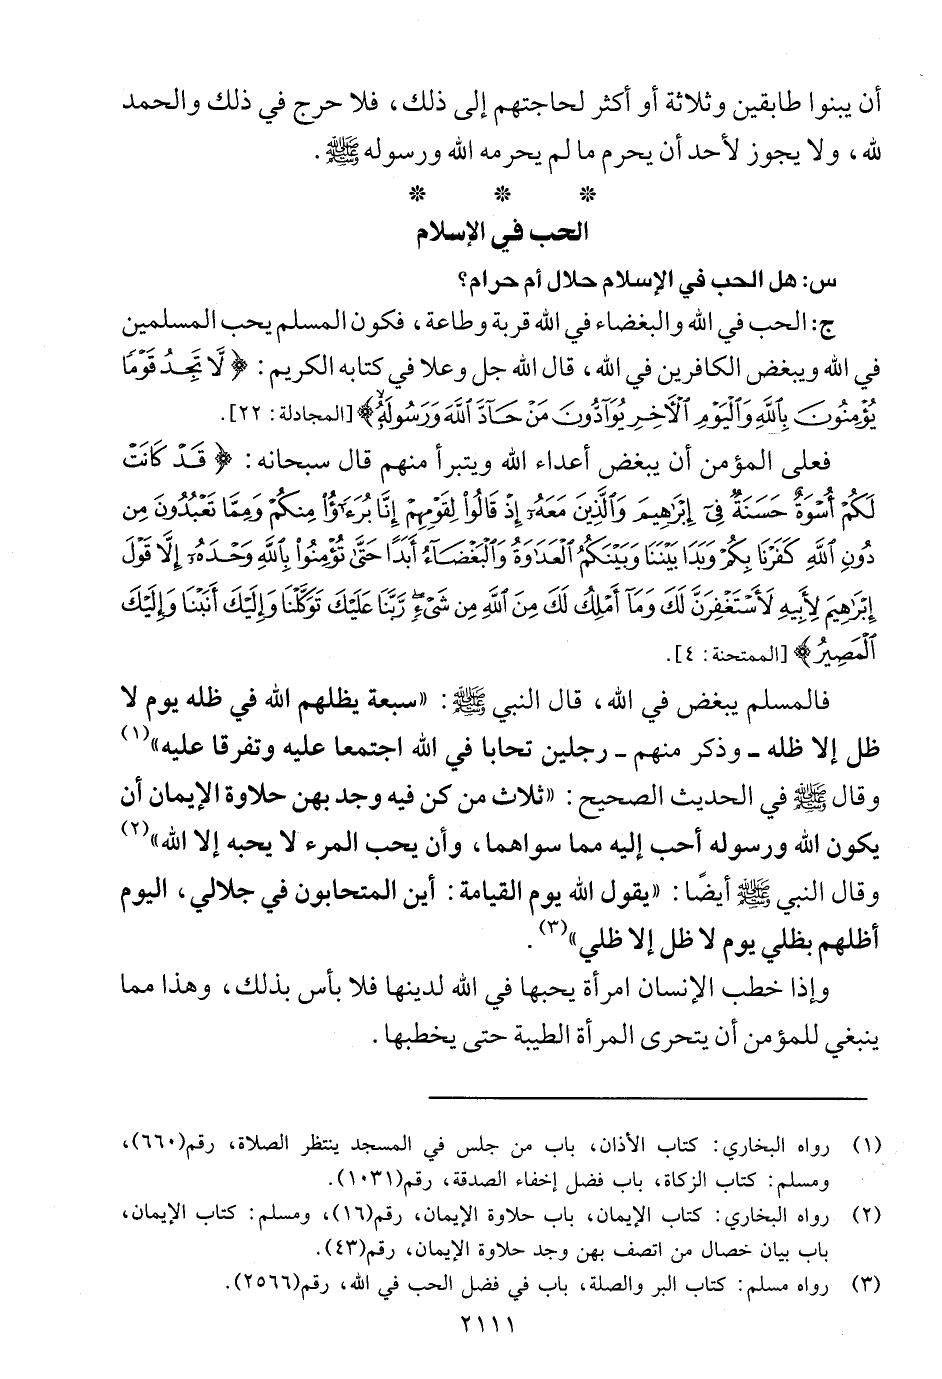 أن يبنوا طابقين وثلاثة أو أكثر لحاجتهم إلى ذلك، فلا حرج في ذلك والحمد
لله، ولا يجوز لأحد أن يحرم ما لم يحرمه الله ورسوله ﷺ.
❊ ❊ ❊
الحب في الإسلام
س: هل الحب في الإسلام حلال أم حرام؟
ج: الحب في الله والبغضاء في الله قربة وطاعة، فكون المسلم يحب المسلمين
في الله ويبغض الكافرين في الله، قال الله جل وعلا في كتابه الكريم: ﴿لَّا تَجِدُ قَوْمًا
يُؤْمِنُونَ بِٱللَّهِ وَٱلْيَوْمِ ٱلْأَخِرِ يُوَآدُّونَ مَنْ حَآدَّ ٱللَّهَ وَرَسُولَهُۥ﴾ [المجادلة: ٢٢].
فعلى المؤمن أن يبغض أعداء الله ويتبرأ منهم قال سبحانه: ﴿قَدْ كَانَتْ
لَكُمْ أُسْوَةٌ حَسَنَةٌ فِىٓ إِبْرَٰهِيمَ وَٱلَّذِينَ مَعَهُۥٓ إِذْ قَالُوا۟ لِقَوْمِهِمْ إِنَّا بُرَءَٰٓؤُا۟ مِنكُمْ وَمِمَّا تَعْبُدُونَ مِن
دُونِ ٱللَّهِ كَفَرْنَا بِكُمْ وَبَدَا بَيْنَنَا وَبَيْنَكُمُ ٱلْعَدَٰوَةُ وَٱلْبَغْضَآءُ أَبَدًا حَتَّىٰ تُؤْمِنُوا۟ بِٱللَّهِ وَحْدَهُۥٓ إِلَّا قَوْلَ
إِبْرَٰهِيمَ لِأَبِيهِ لَأَسْتَغْفِرَنَّ لَكَ وَمَآ أَمْلِكُ لَكَ مِنَ ٱللَّهِ مِن شَىْءٍ رَّبَّنَا عَلَيْكَ تَوَكَّلْنَا وَإِلَيْكَ أَنَبْنَا وَإِلَيْكَ
ٱلْمَصِيرُ﴾ [الممتحنة: ٤].
فالمسلم يبغض في الله، قال النبي ﷺ: «سبعة يظلهم الله في ظله يوم لا
ظل إلا ظله ـ وذكر منهم ـ رجلين تحابا في الله اجتمعا عليه وتفرقا عليه»(١)
وقال ﷺ في الحديث الصحيح: «ثلاث من كن فيه وجد بهن حلاوة الإيمان أن
يكون الله ورسوله أحب إليه مما سواهما، وأن يحب المرء لا يحبه إلا الله»(٢)
وقال النبي ﷺ أيضًا: «يقول الله يوم القيامة: أين المتحابون في جلالي، اليوم
أظلهم بظلي يوم لا ظل إلا ظلي»(٣).
وإذا خطب الإنسان امرأة يحبها في الله لدينها فلا بأس بذلك، وهذا مما
ينبغي للمؤمن أن يتحرى المرأة الطيبة حتى يخطبها.
(١) رواه البخاري: كتاب الأذان، باب من جلس في المسجد ينتظر الصلاة، رقم(٦٦٠)،
ومسلم: كتاب الزكاة، باب فضل إخفاء الصدقة، رقم(١٠٣١).
(٢) رواه البخاري: كتاب الإيمان، باب حلاوة الإيمان، رقم(١٦)، ومسلم: كتاب الإيمان،
باب بيان خصال من اتصف بهن وجد حلاوة الإيمان، رقم(٤٣).
(٣) رواه مسلم: كتاب البر والصلة، باب في فضل الحب في الله، رقم(٢٥٦٦).
٢١١١